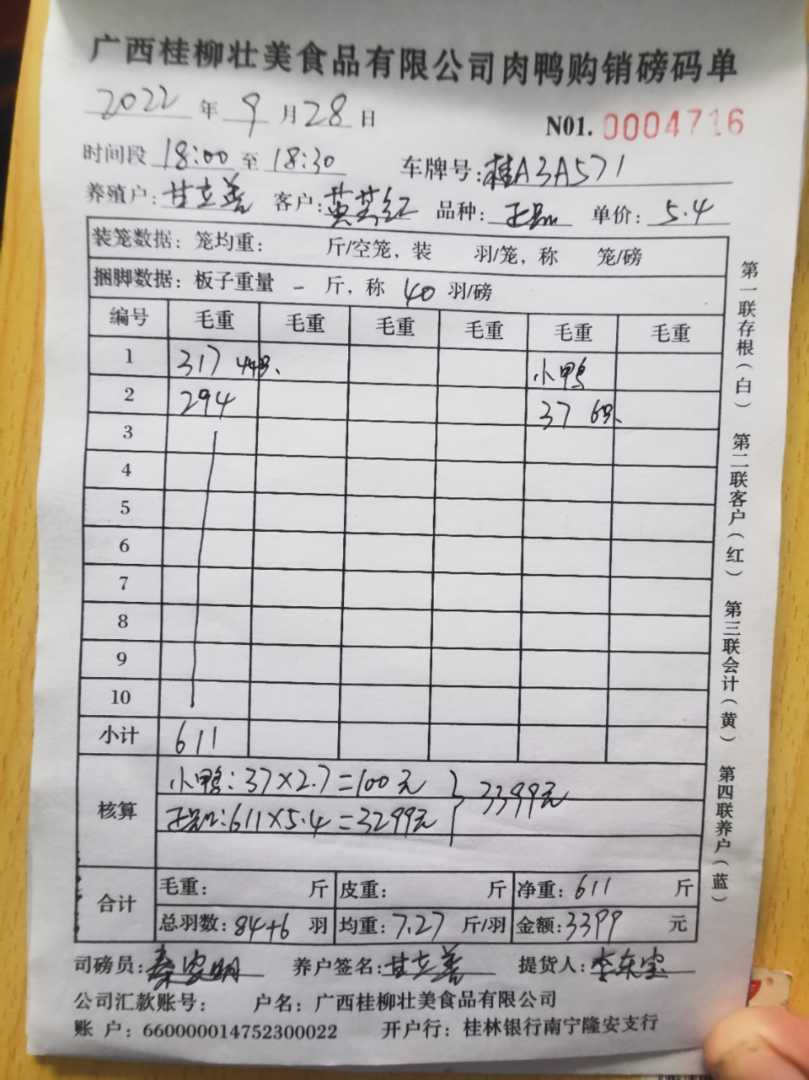 广西桂柳壮美食品有限公司肉鸭购销磅码单
2022 年 9 月 28 日 N01. 0004716
时间段 18:00 至 18:30 车牌号: 桂A3A571
养殖户: 甘立善 客户: 黄英红 品种: 正品 单价: 5.4
装笼数据: 笼均重: 斤/空笼, 装 羽/笼, 称 笼/磅
捆脚数据: 板子重量 - 斤, 称 40 羽/磅
编号 毛重 毛重 毛重 毛重 毛重 毛重
1 317 44只、 小鸭
2 294 37 6只、
3
4
5
6
7
8
9
10
小计 611
核算
小鸭:37×2.7=100元
正品:611×5.4=3299元
3399元
合计
毛重: 斤 皮重: 斤 净重: 611 斤
总羽数: 84+6 羽 均重: 7.27 斤/羽 金额: 3399 元
司磅员: 养户签名: 甘立善 提货人:
公司汇款账号: 户名: 广西桂柳壮美食品有限公司
账 户: 660000014752300022 开户行: 桂林银行南宁隆安支行
第一联存根(白) 第二联客户(红) 第三联会计(黄) 第四联养户(蓝)